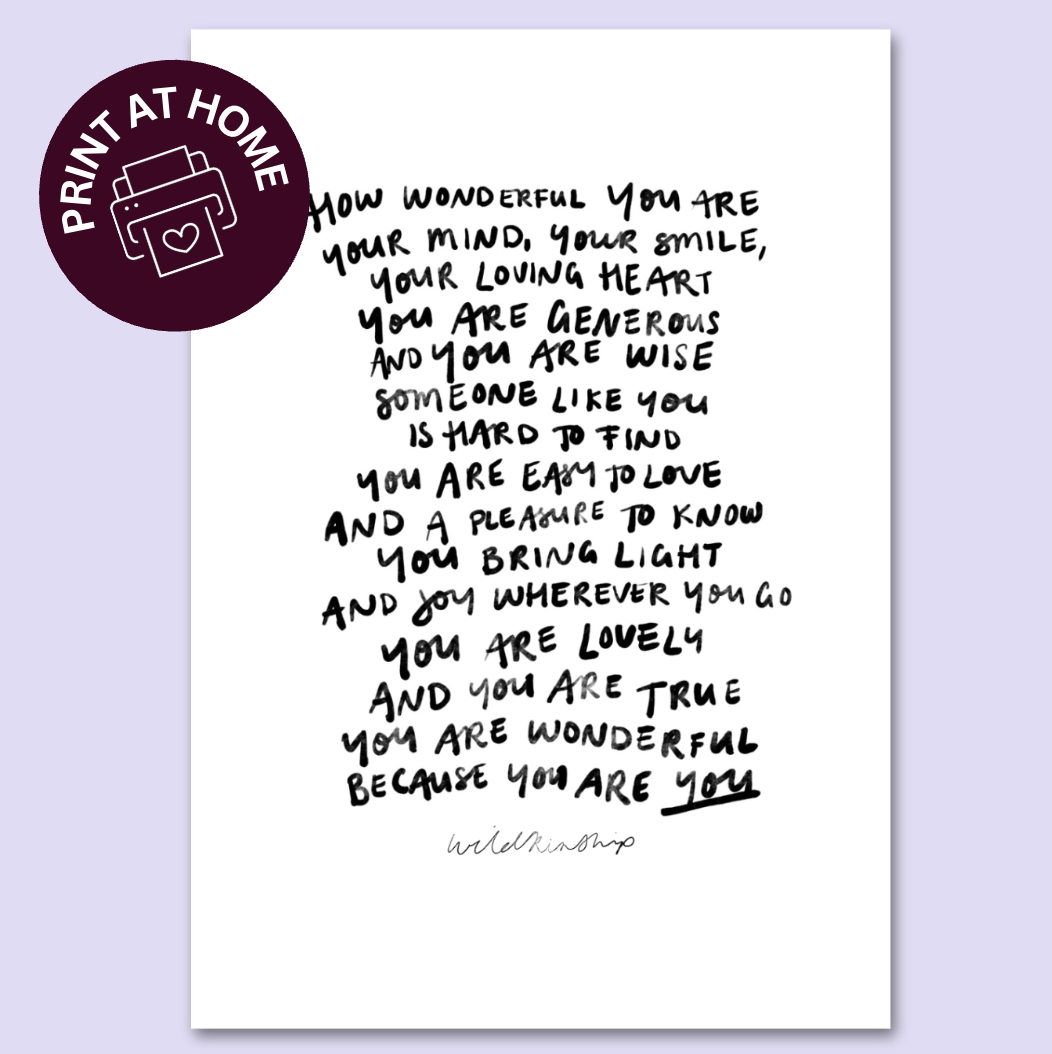 PRINT AT HOME
HOW WONDERFUL YOU ARE
YOUR MIND, YOUR SMILE,
YOUR LOVING HEART
YOU ARE GENEROUS
AND YOU ARE WISE
SOMEONE LIKE YOU
IS HARD TO FIND
YOU ARE EASY TO LOVE
AND A PLEASURE TO KNOW
YOU BRING LIGHT
AND JOY WHEREVER YOU GO
YOU ARE LOVELY
AND YOU ARE TRUE
YOU ARE WONDERFUL
BECAUSE YOU ARE YOU
wildkinship